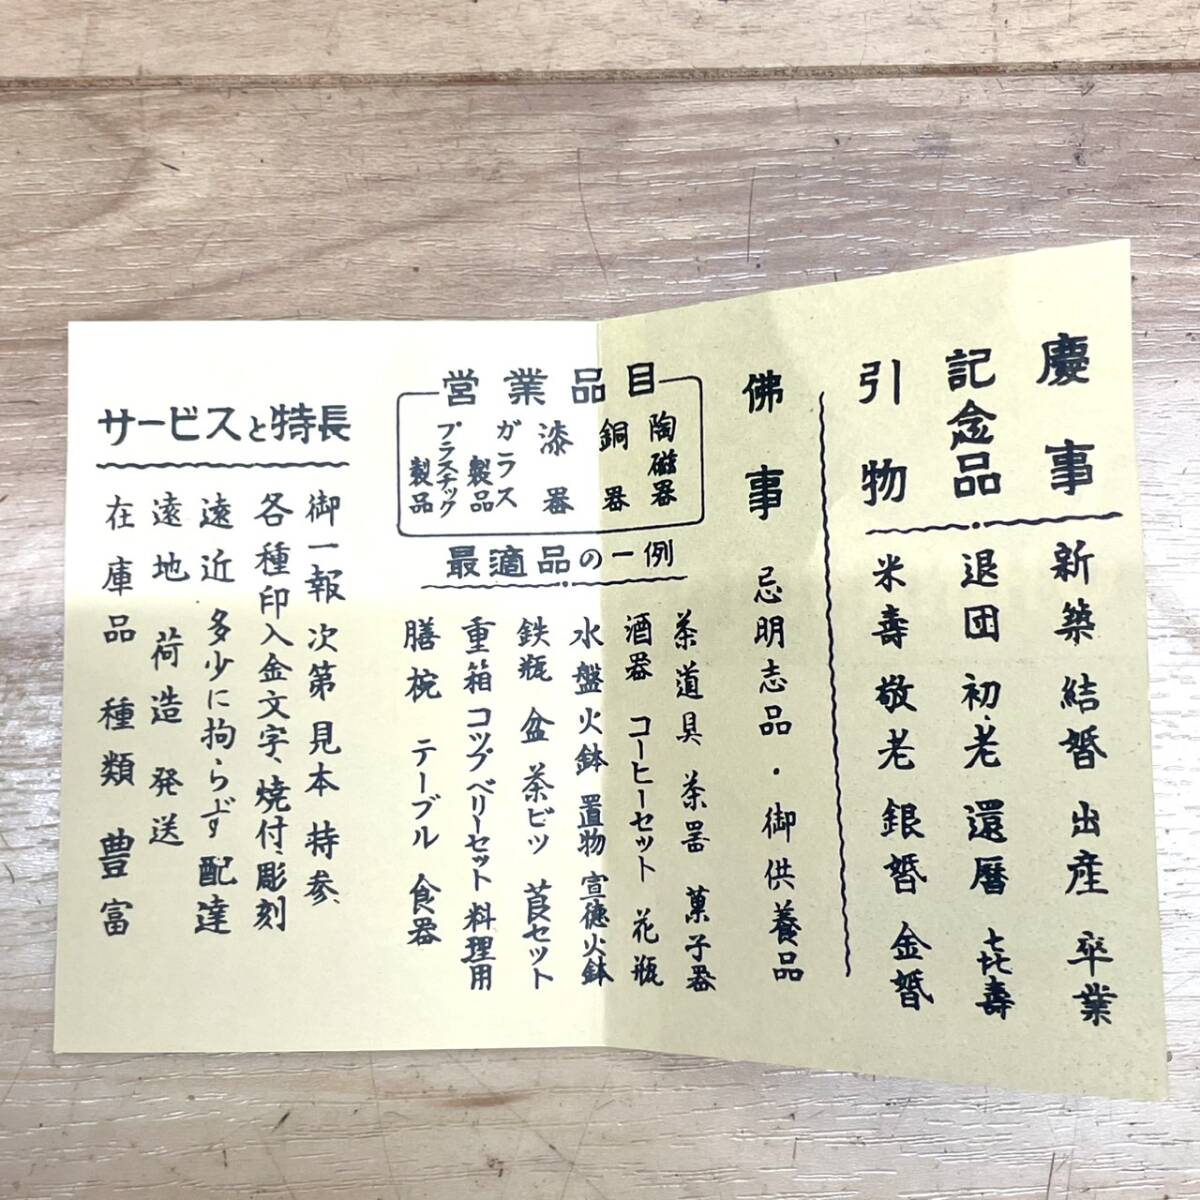 慶事 新築 結婚 出産 卒業
記念品 退団 初老 還暦 㐂壽
引物 米壽 敬老 銀婚 金婚
佛事 忌明志品・御供養品
営業品目
陶磁器
銅器
漆器
ガラス製品
プラスチック製品
最適品の一例
茶道具 茶器 菓子器
酒器 コーヒーセット 花瓶
水盤 火鉢 置物 宣德火鉢
鉄瓶 盆 茶ビツ 莨セット
重箱 コップ ベリーセット 料理用
膳椀 テーブル 食器
サービスと特長
御一報次第見本持参、
各種印入金文字、焼付彫刻
遠近多少に拘らず配達
遠地荷造発送
在庫品種類豊富